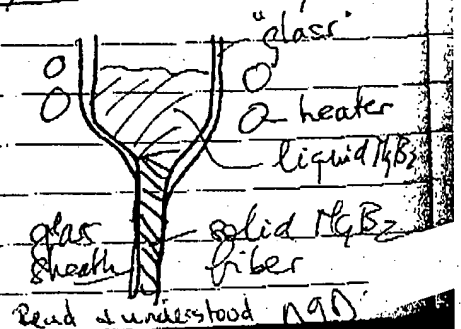 "glass"
heater
liquid MgB2
glass solid MgB2
sheath fiber
Read & understood